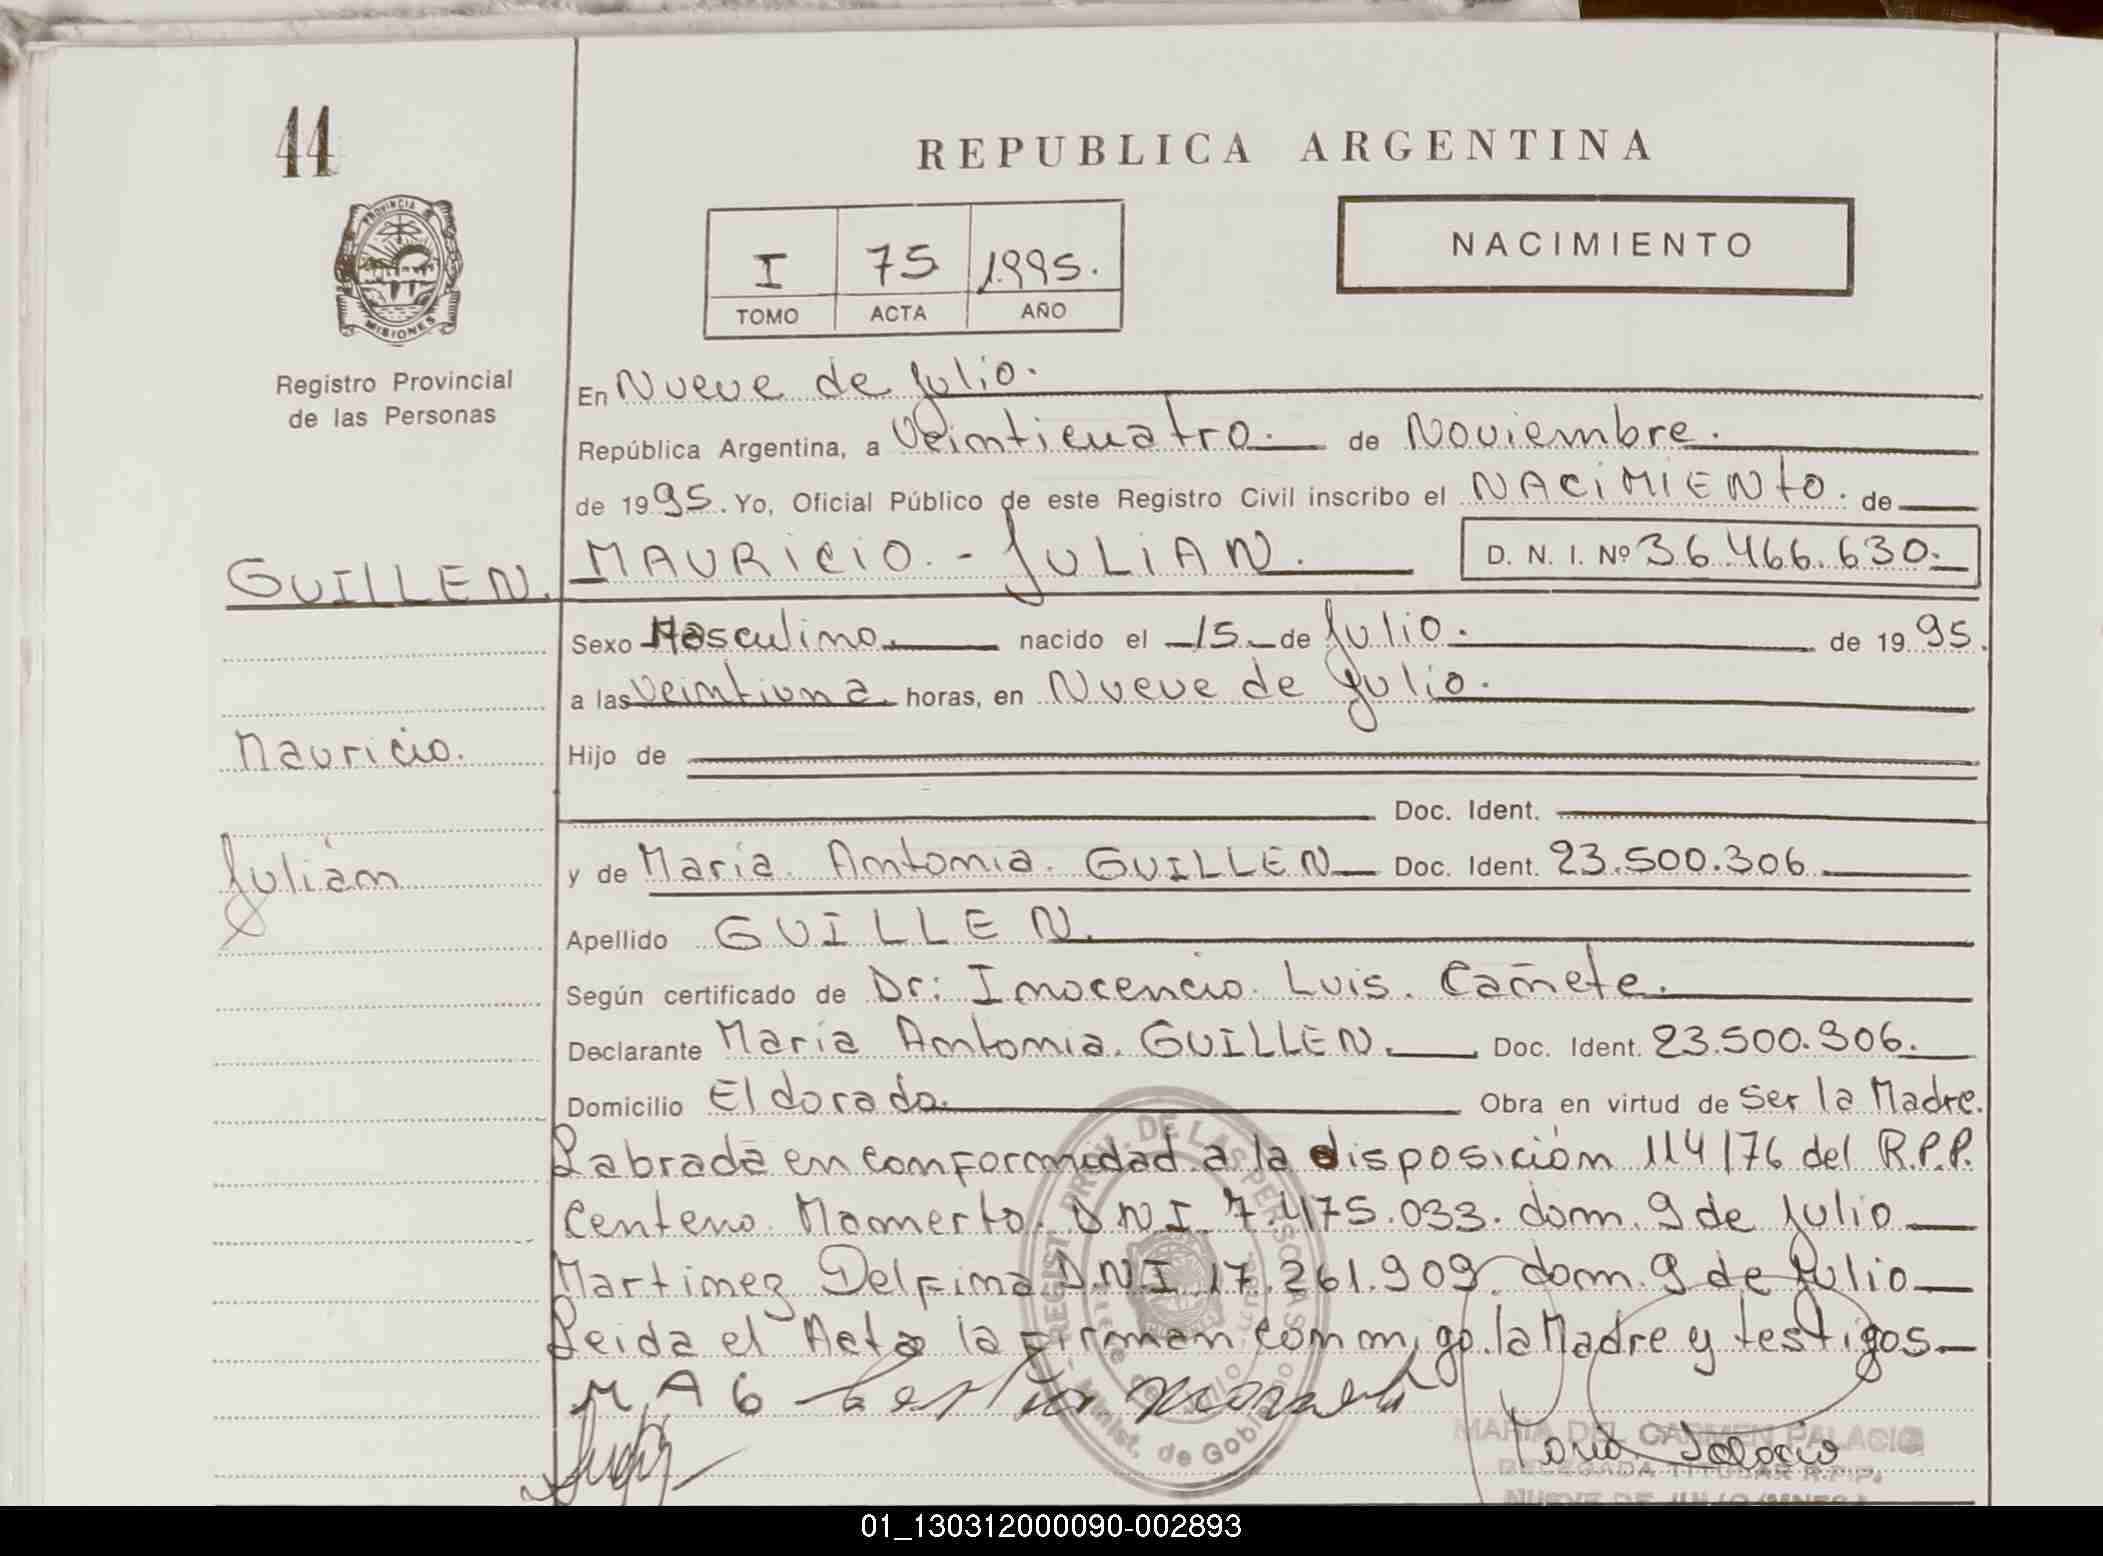 44
REPUBLICA ARGENTINA
PROVINCIA
MISIONES
I 75 1995.
TOMO ACTA AÑO
NACIMIENTO
Registro Provincial
de las Personas
En Nueve de Julio.
República Argentina, a Veinticuatro. de Noviembre.
de 1995. Yo, Oficial Público de este Registro Civil inscribo el NACIMIENTO. de
GUILLEN. MAURICIO.- JULIAN. D. N. I. Nº 36.466.630.
Sexo Masculino. nacido el 15 de Julio. de 1995.
a las Veintiuna. horas, en Nueve de Julio.
Mauricio. Hijo de
Doc. Ident.
Julián y de María Antonia. GUILLEN Doc. Ident. 23.500.306
Apellido GUILLEN.
Según certificado de Dr: Inocencio Luis. Cañete.
Declarante María Antonia. GUILLEN. Doc. Ident. 23.500.306.
Domicilio Eldorado. Obra en virtud de Ser la Madre.
Labrada en conformidad a la disposición 114/76 del R.P.P.
Centeno Mamerto. DNI 7.475.033. dom. 9 de Julio
Martinez Delfina D.N.I. 17.261.909. dom. 9 de Julio
Leida el Acta la firman conmigo la Madre y testigos.
M A G
MARIA DEL CARMEN PALACIO
DELEGADA TITULAR R.P.P.
NUEVE DE JULIO (MNES.)
01_130312000090-002893